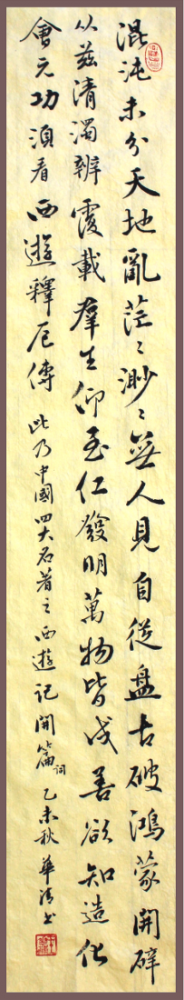 混沌未分天地亂茫々渺々無人見自從盤古破鴻蒙開闢
從茲清濁辨覆載群生仰至仁發明萬物皆成善欲知造化
會元功須看西遊釋厄傳此乃中國四大名著之西遊記開篇詞乙未秋華清書